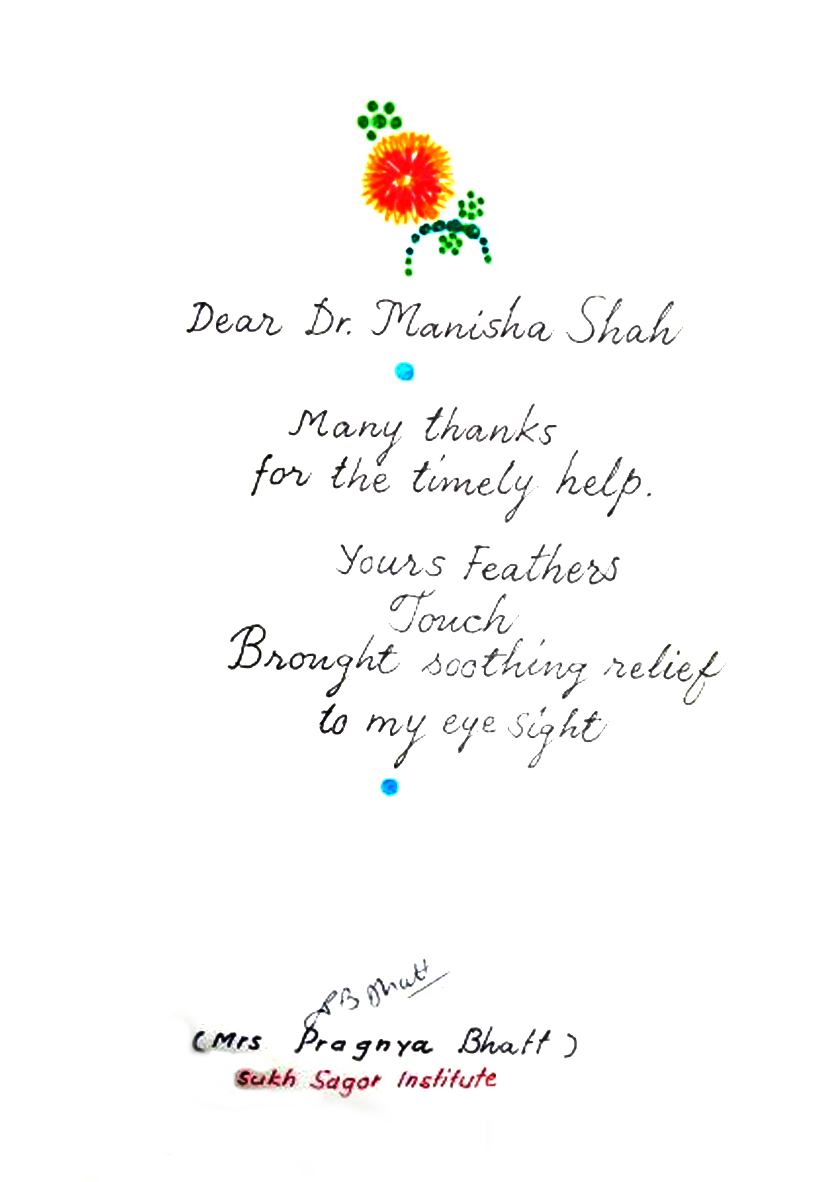 Dear Dr. Manisha Shah
Many thanks
for the timely help.
Yours Feathers
Touch
Brought soothing relief
to my eye sight
PB Bhatt
(Mrs Pragnya Bhatt)
Sukh Sagar Institute